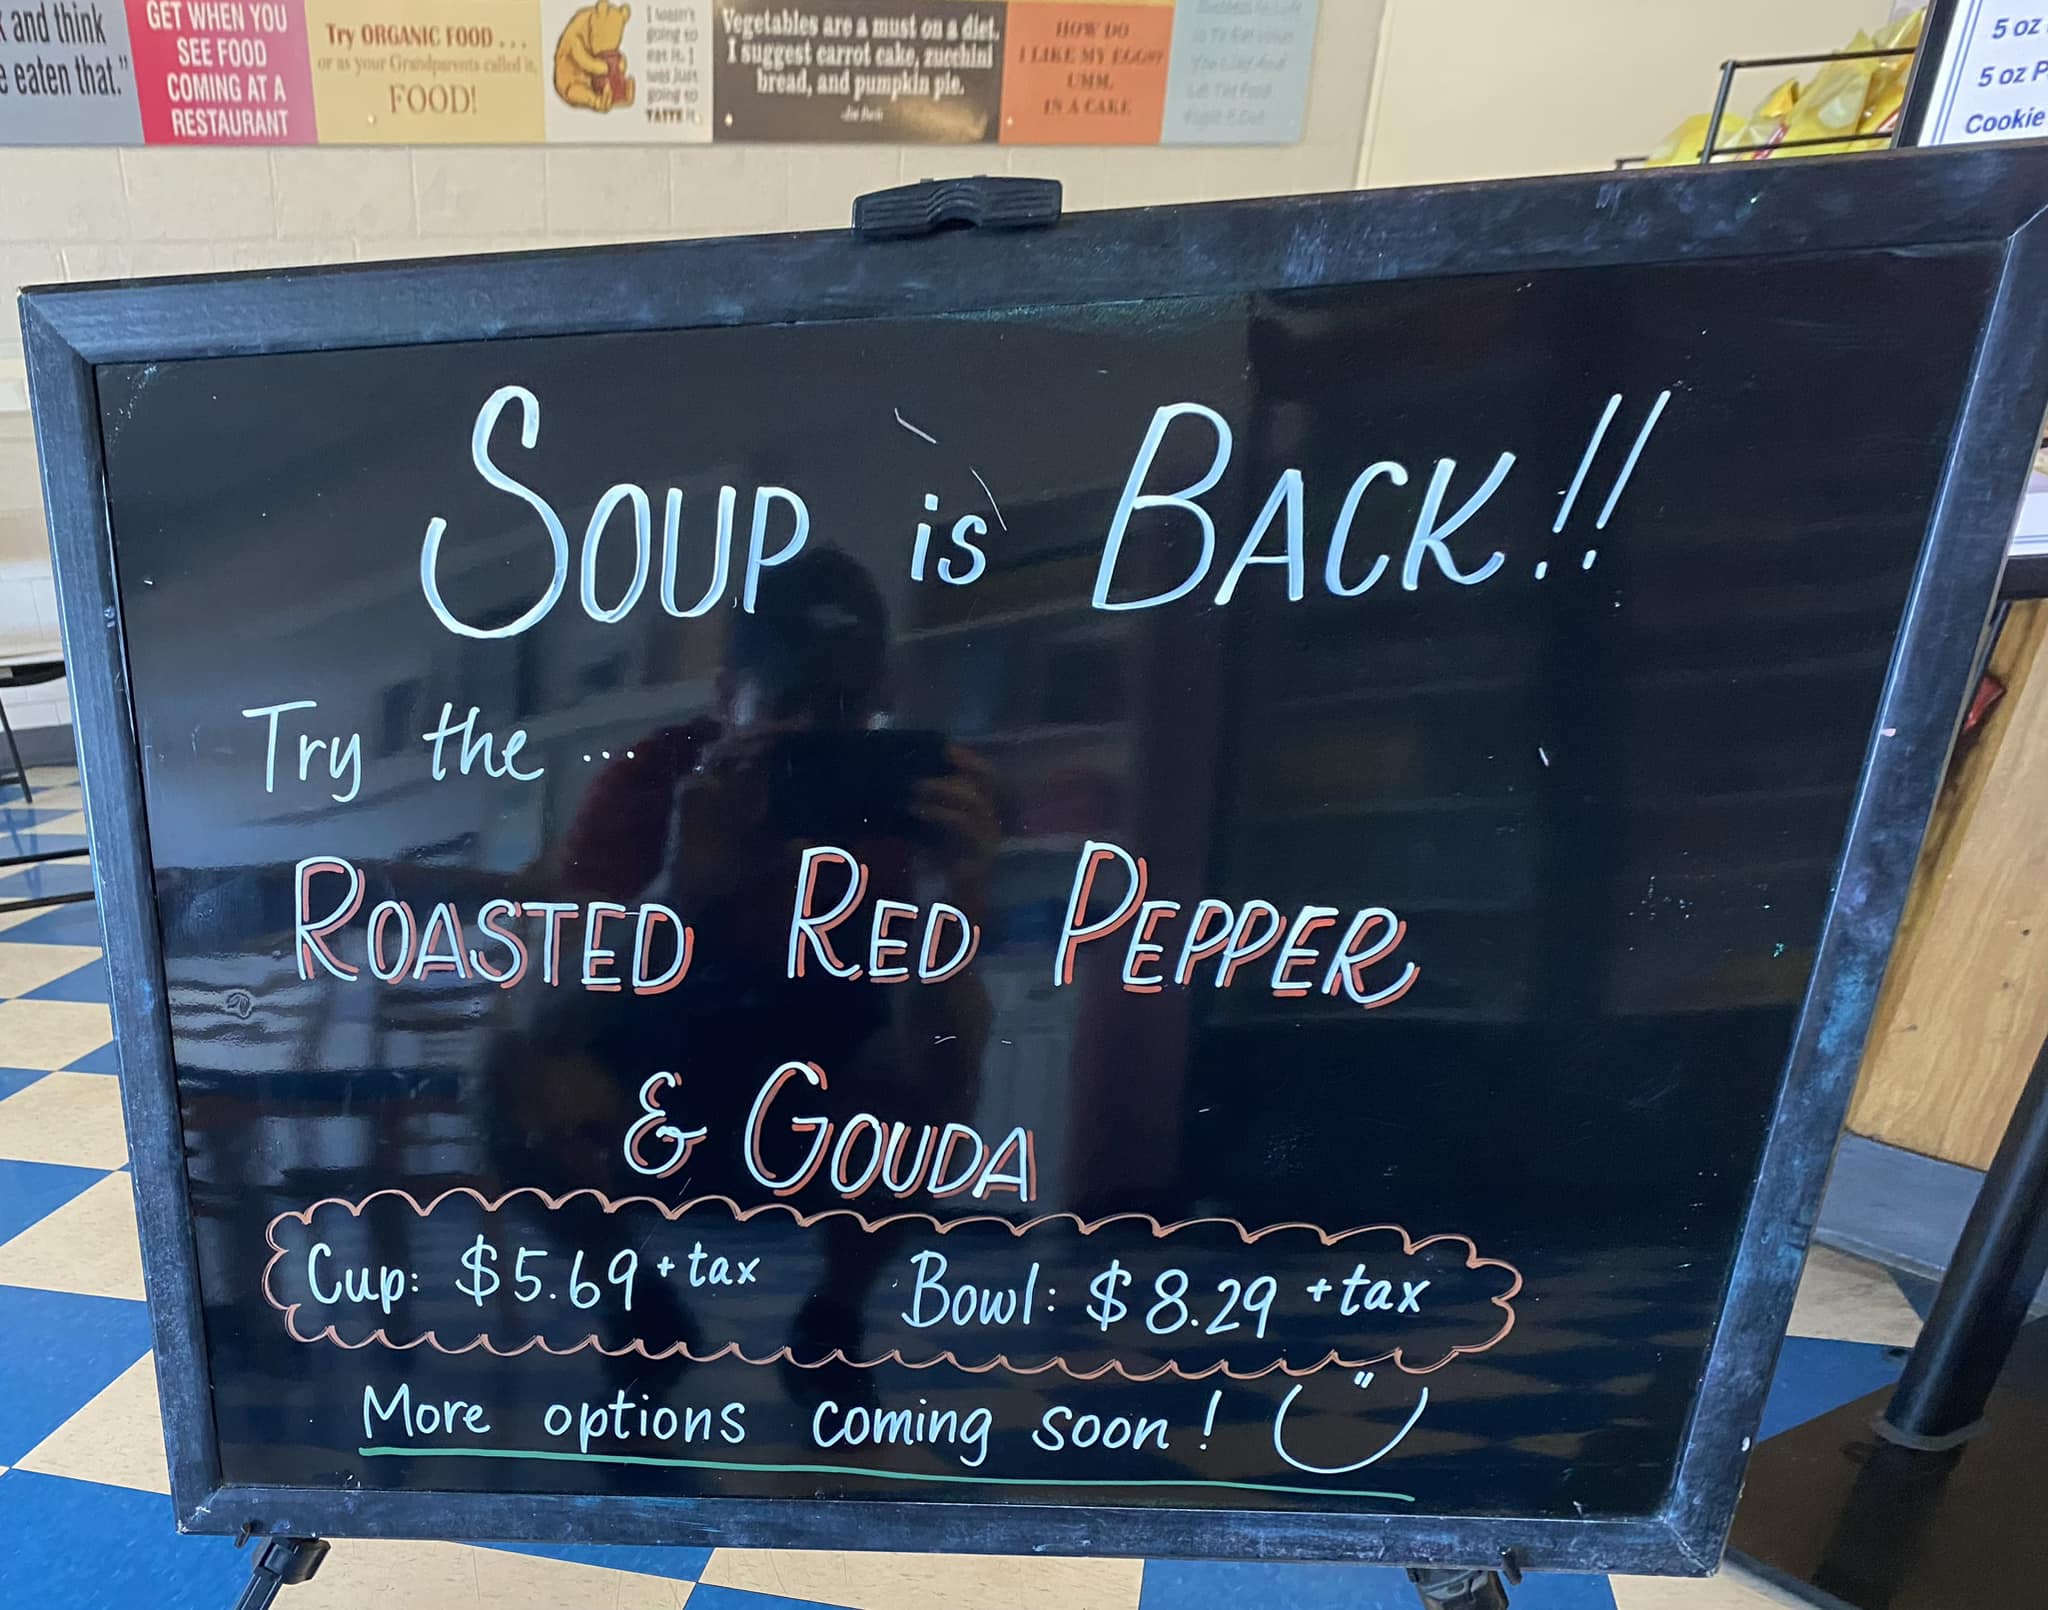 and think
eaten that."
GET WHEN YOU
SEE FOOD
COMING AT A
RESTAURANT
Try ORGANIC FOOD ...
or as your Grandparents called it,
FOOD!
I wasn't
going to
eat it. I
was just
going to
TASTE it.
Vegetables are a must on a diet.
I suggest carrot cake, zucchini
bread, and pumpkin pie.
HOW DO
I LIKE MY EGGS?
UMM,
IN A CAKE.
5 oz
5 oz
Cookie
SOUP is BACK!!
Try the ...
ROASTED RED PEPPER
& GOUDA
Cup: $5.69 + tax Bowl: $8.29 + tax
More options coming soon!